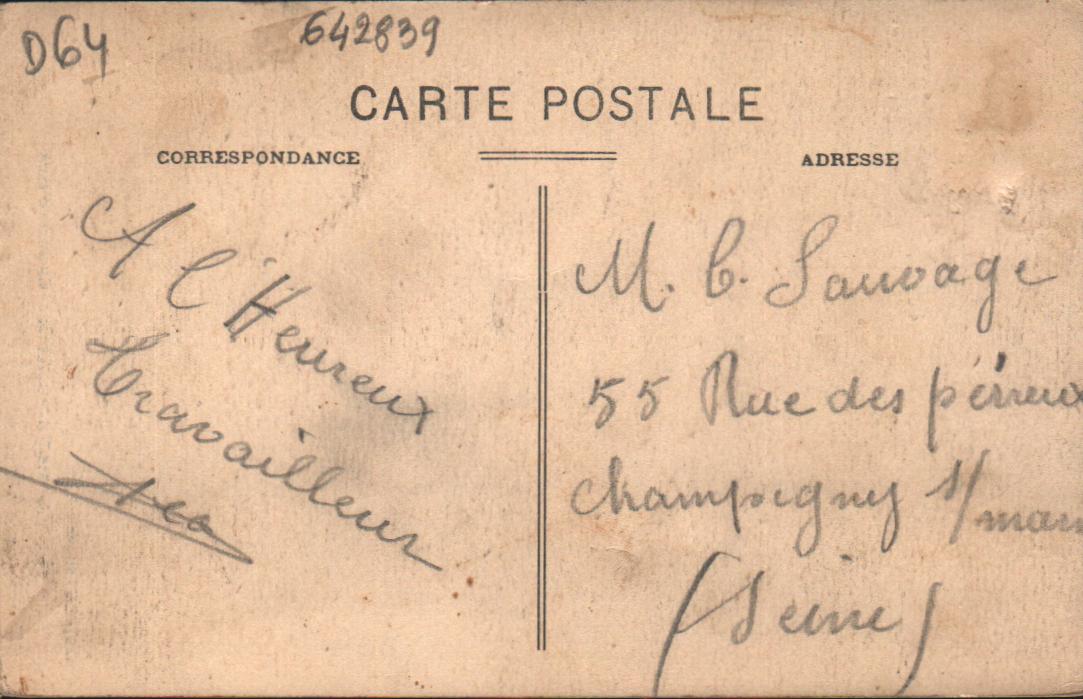 D64
642839
CARTE POSTALE
CORRESPONDANCE
ADRESSE
A l'Heureux
Travailleur
M. C. Sauvage
55 Rue des
Champigny s/
(Seine)